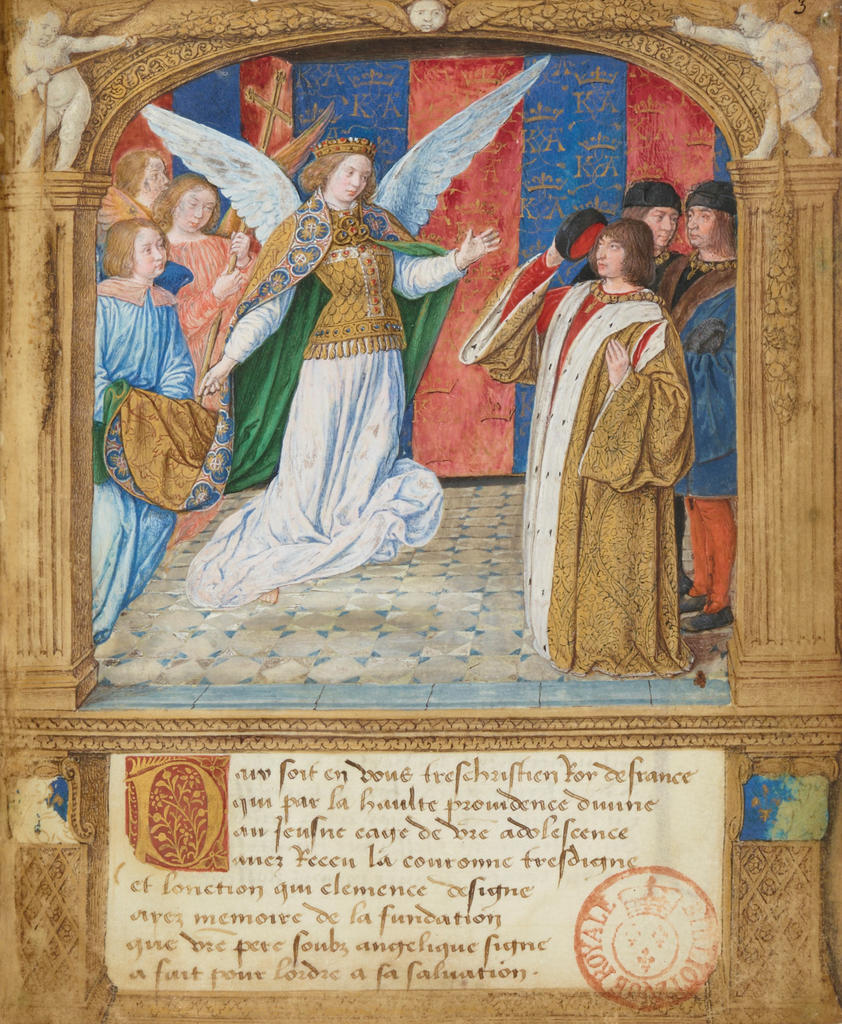 3
KA
KA
KA
KA
KA
KA
Paix soit en vous treschristien Roy de france
qui par la haulte prouidence diuine
au jeusne eage de vre adolescence
auez Receu la couronne tresdigne
et lonction qui clemence designe
ayez memoire de la fundation
que vre pere soubz angelique signe
a fait pour lordre a sa saluation.
BIBLIOTHEQUE ROYALE